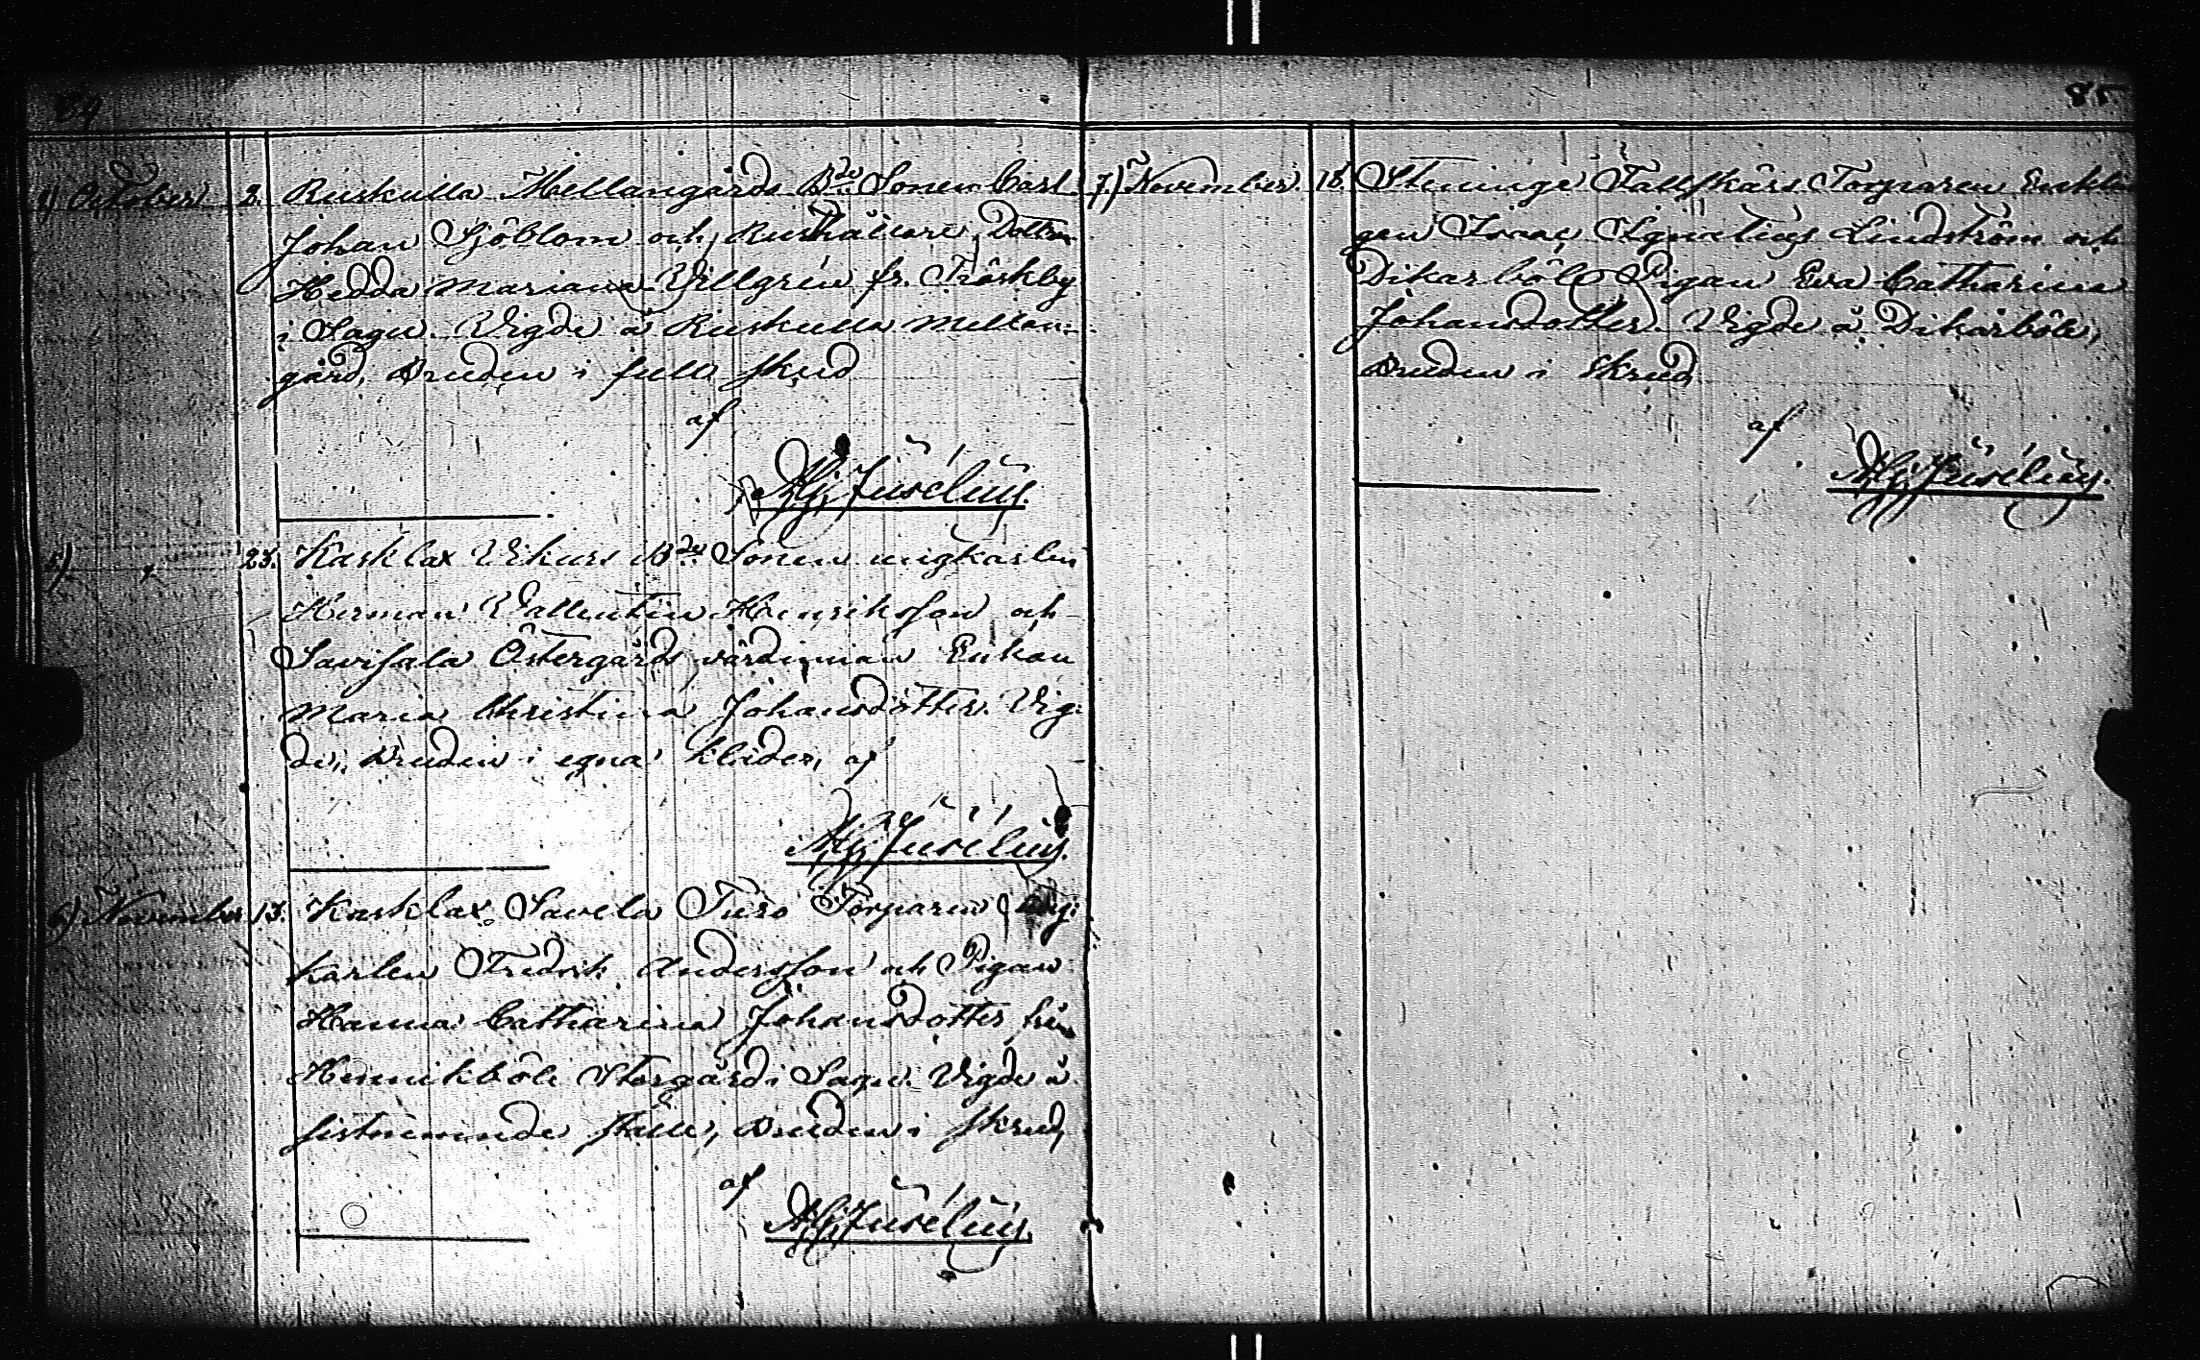 84
4) October 2. Ruskulla Mellangårds Bde Sonen Carl
Johan Sjöblom och Rusthållare Dottren
Hedda Mariana Villgrén fr. Tröskby
i Sagu. Vigde å Ruskulla Mellan-
gård, Bruden i full skrud
af
Juselius.
5) " 23. Kasklax Vikars Bde Sonen ungkarlen
Herman Vallentin Henriksson och
Savisala Östergårds värdinnan Enkan
Maria Christina Johansdotter. Vig-
de, Bruden i egna kläder, af
Juselius.
6) November 13. Kasklax Savela Turo Torparen Ung-
karlen Fredrik Andersson och Pigan
Hanna Catharina Johansdotter från
Hennikböle Storgård i Sagu. Vigde å
sistnämnde ställe, Bruden i skrud,
af
Juselius.
85
7) November. 18. Steninge Tallskärs Torparen Enklin-
gen Isaac Ignatius Lindström och
Dikarböle Pigan Eva Catharina
Johansdotter. Vigde å Dikarböle,
Bruden i Skrud
af
Juselius.